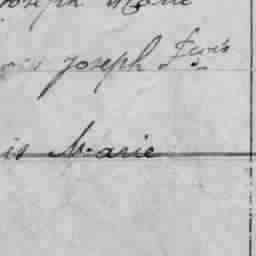 Joseph Marie
Joseph Fcois
is Marie